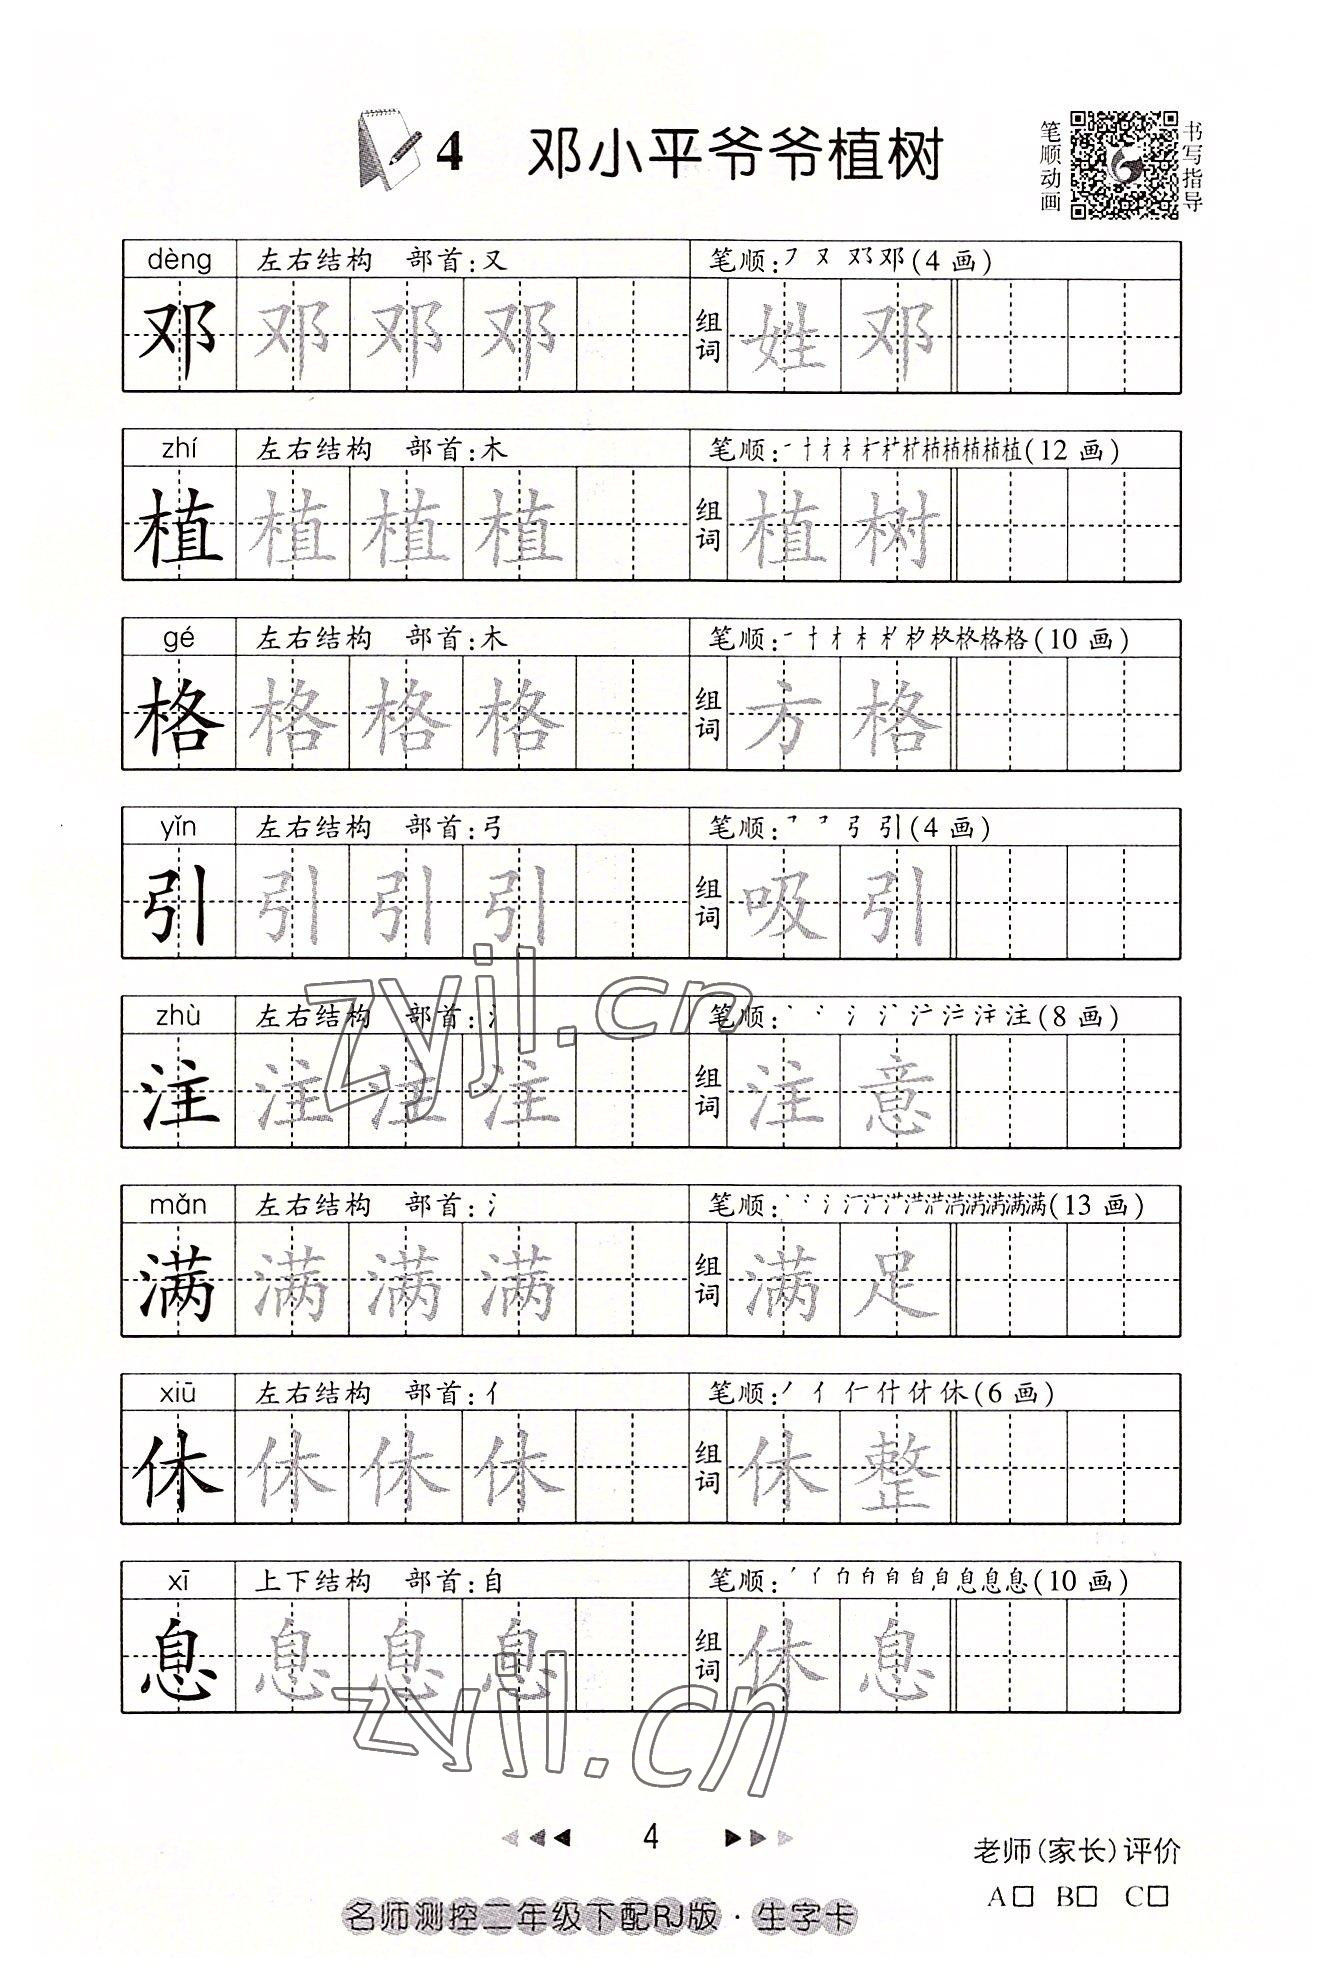 4 邓小平爷爷植树
笔顺动画
书写指导
dèng 左右结构 部首:又 笔顺: 邓(4画)
邓 邓 邓 邓 组词 姓邓
zhí 左右结构 部首:木 笔顺: 一十才木 植(12画)
植 植 植 植 组词 植树
gé 左右结构 部首:木 笔顺: 一十才木 格(10画)
格 格 格 格 组词 方格
yǐn 左右结构 部首:弓 笔顺: 弓引(4画)
引 引 引 引 组词 吸引
zhù 左右结构 部首:氵 笔顺: 氵 注(8画)
注 注 注 注 组词 注意
mǎn 左右结构 部首:氵 笔顺: 氵 满(13画)
满 满 满 满 组词 满足
xiū 左右结构 部首:亻 笔顺: 丿亻仁什休休(6画)
休 休 休 休 组词 休整
xī 上下结构 部首:自 笔顺: 自 息(10画)
息 息 息 息 组词 休息
zyjl.cn
zyjl.cn
4
老师(家长)评价
A□ B□ C□
名师测控二年级下配RJ版·生字卡